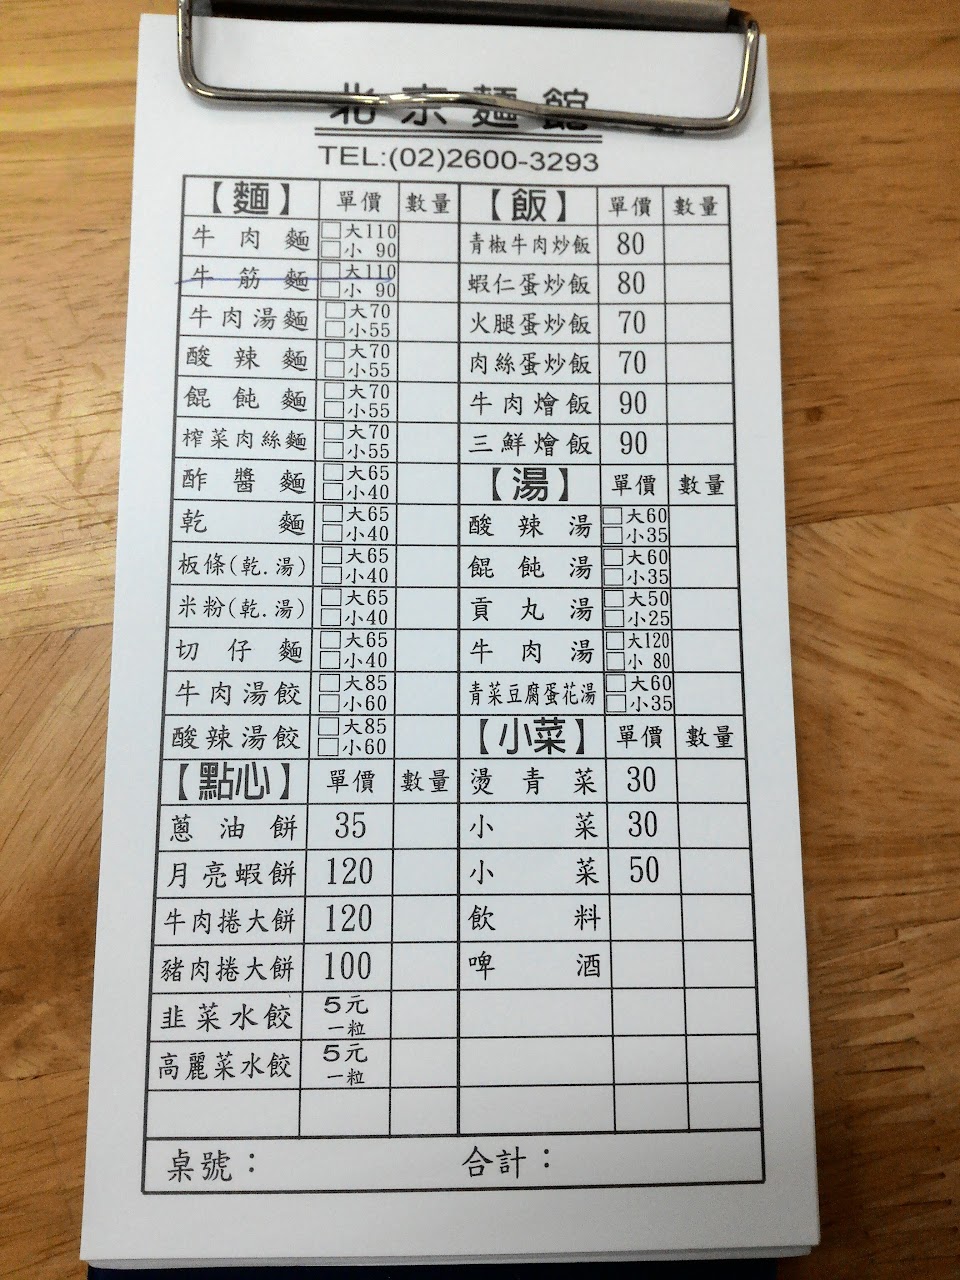 北京麵館
TEL:(02)2600-3293
【麵】 單價 數量
牛肉麵 □大110 □小 90
牛筋麵 □大110 □小 90
牛肉湯麵 □大70 □小55
酸辣麵 □大70 □小55
餛飩麵 □大70 □小55
榨菜肉絲麵 □大70 □小55
酢醬麵 □大65 □小40
乾麵 □大65 □小40
板條(乾.湯) □大65 □小40
米粉(乾.湯) □大65 □小40
切仔麵 □大65 □小40
牛肉湯餃 □大85 □小60
酸辣湯餃 □大85 □小60
【點心】 單價 數量
蔥油餅 35
月亮蝦餅 120
牛肉捲大餅 120
豬肉捲大餅 100
韭菜水餃 5元一粒
高麗菜水餃 5元一粒
【飯】 單價 數量
青椒牛肉炒飯 80
蝦仁蛋炒飯 80
火腿蛋炒飯 70
肉絲蛋炒飯 70
牛肉燴飯 90
三鮮燴飯 90
【湯】 單價 數量
酸辣湯 □大60 □小35
餛飩湯 □大60 □小35
貢丸湯 □大50 □小25
牛肉湯 □大120 □小 80
青菜豆腐蛋花湯 □大60 □小35
【小菜】 單價 數量
燙青菜 30
小菜 30
小菜 50
飲料
啤酒
桌號： 合計：